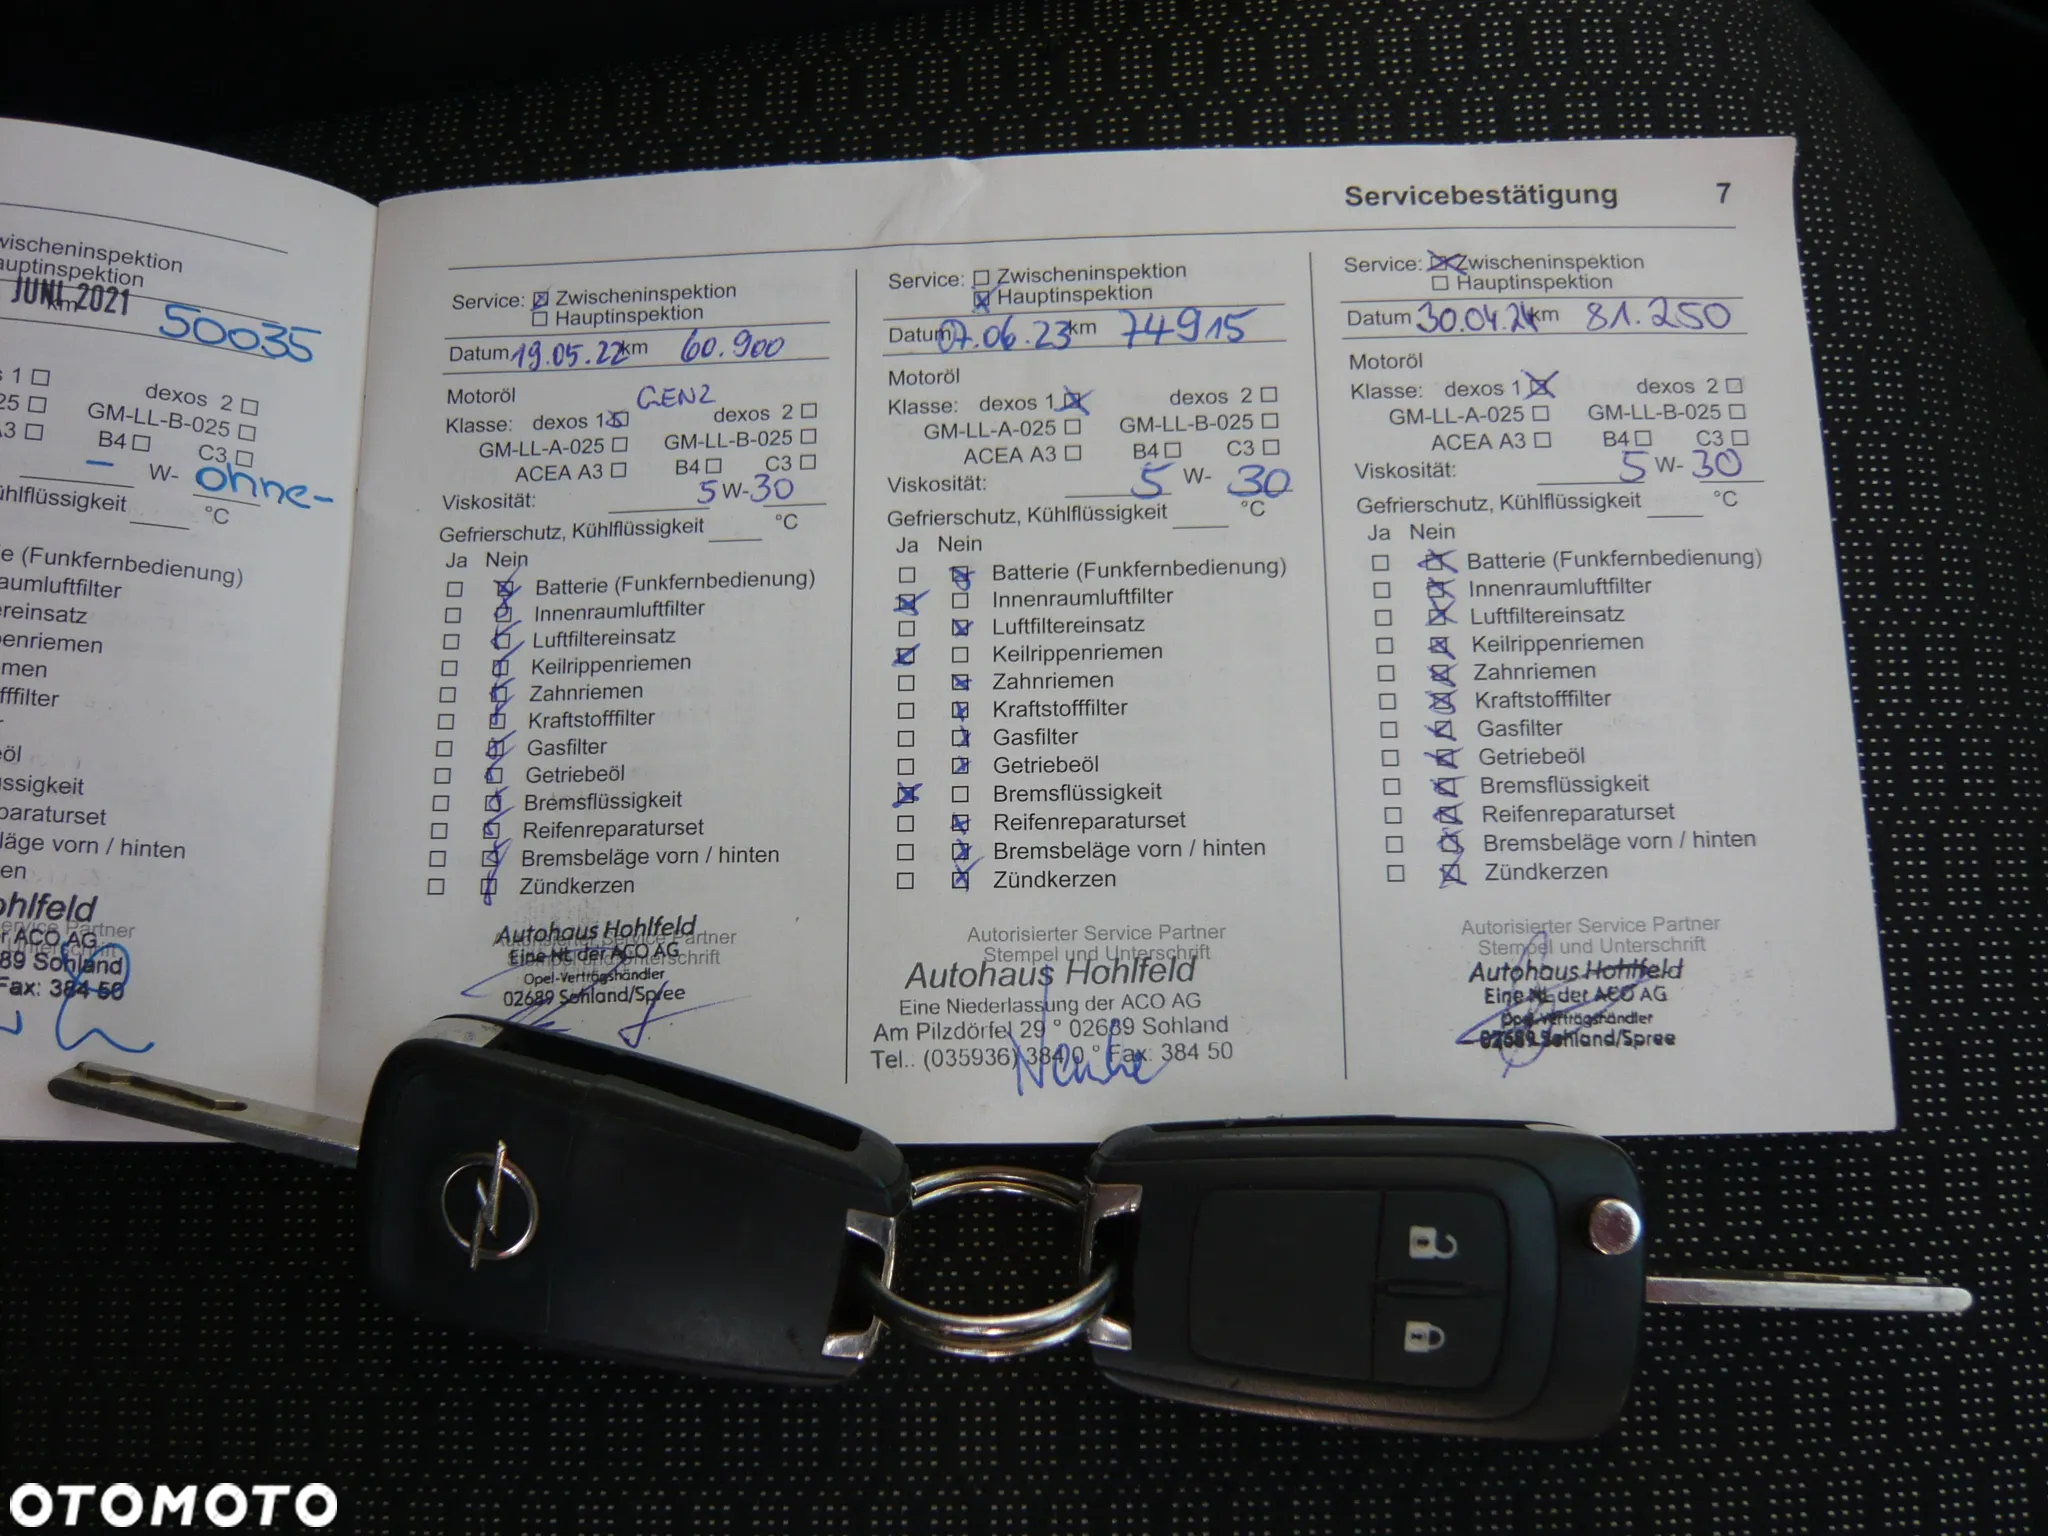 wischeninspektion
auptinspektion
JUNI 2021
km
50035
s 1 ☐ dexos 2 ☐
25 ☐ GM-LL-B-025 ☐
A3 ☐ B4 ☐ C3 ☐
– W- ohne-
ühlflüssigkeit ____ °C
e (Funkfernbedienung)
raumluftfilter
ereinsatz
penriemen
emen
fffilter
öl
ssigkeit
paraturset
läge vorn / hinten
en
ohlfeld
ervice Partner
r ACO AG
Unterschrift
89 Sohland
Fax: 384 50
Servicebestätigung 7
Service: ☒ Zwischeninspektion
☐ Hauptinspektion
Datum 19.05.22 km 60.900
Motoröl GEN2
Klasse: dexos 1 ☒ dexos 2 ☐
GM-LL-A-025 ☐ GM-LL-B-025 ☐
ACEA A3 ☐ B4 ☐ C3 ☐
Viskosität: 5 W-30
Gefrierschutz, Kühlflüssigkeit ____ °C
Ja Nein
☐ ☒ Batterie (Funkfernbedienung)
☐ ☒ Innenraumluftfilter
☐ ☒ Luftfiltereinsatz
☐ ☒ Keilrippenriemen
☐ ☒ Zahnriemen
☐ ☒ Kraftstofffilter
☐ ☒ Gasfilter
☐ ☒ Getriebeöl
☐ ☒ Bremsflüssigkeit
☐ ☒ Reifenreparaturset
☐ ☒ Bremsbeläge vorn / hinten
☐ ☒ Zündkerzen
Autohaus Hohlfeld
Autorisierter Service Partner
Eine NL der ACO AG
Stempel und Unterschrift
Opel-Vertragshändler
02689 Sohland/Spree
Service: ☐ Zwischeninspektion
☒ Hauptinspektion
Datum 07.06.23 km 74915
Motoröl
Klasse: dexos 1 ☒ dexos 2 ☐
GM-LL-A-025 ☐ GM-LL-B-025 ☐
ACEA A3 ☐ B4 ☐ C3 ☐
Viskosität: 5 W- 30
Gefrierschutz, Kühlflüssigkeit ____ °C
Ja Nein
☐ ☒ Batterie (Funkfernbedienung)
☒ ☐ Innenraumluftfilter
☐ ☒ Luftfiltereinsatz
☒ ☐ Keilrippenriemen
☐ ☒ Zahnriemen
☐ ☒ Kraftstofffilter
☐ ☒ Gasfilter
☐ ☒ Getriebeöl
☒ ☐ Bremsflüssigkeit
☐ ☒ Reifenreparaturset
☐ ☒ Bremsbeläge vorn / hinten
☐ ☒ Zündkerzen
Autorisierter Service Partner
Stempel und Unterschrift
Autohaus Hohlfeld
Eine Niederlassung der ACO AG
Am Pilzdörfel 29 ° 02689 Sohland
Tel.: (035936) 384 0 ° Fax: 384 50
Service: ☒ Zwischeninspektion
☐ Hauptinspektion
Datum 30.04.24 km 81.250
Motoröl
Klasse: dexos 1 ☒ dexos 2 ☐
GM-LL-A-025 ☐ GM-LL-B-025 ☐
ACEA A3 ☐ B4 ☐ C3 ☐
Viskosität: 5 W- 30
Gefrierschutz, Kühlflüssigkeit ____ °C
Ja Nein
☐ ☒ Batterie (Funkfernbedienung)
☐ ☒ Innenraumluftfilter
☐ ☒ Luftfiltereinsatz
☐ ☒ Keilrippenriemen
☐ ☒ Zahnriemen
☐ ☒ Kraftstofffilter
☐ ☒ Gasfilter
☐ ☒ Getriebeöl
☐ ☒ Bremsflüssigkeit
☐ ☒ Reifenreparaturset
☐ ☒ Bremsbeläge vorn / hinten
☐ ☒ Zündkerzen
Autorisierter Service Partner
Stempel und Unterschrift
Autohaus Hohlfeld
Eine NL der ACO AG
Opel-Vertragshändler
02689 Sohland/Spree
OTOMOTO